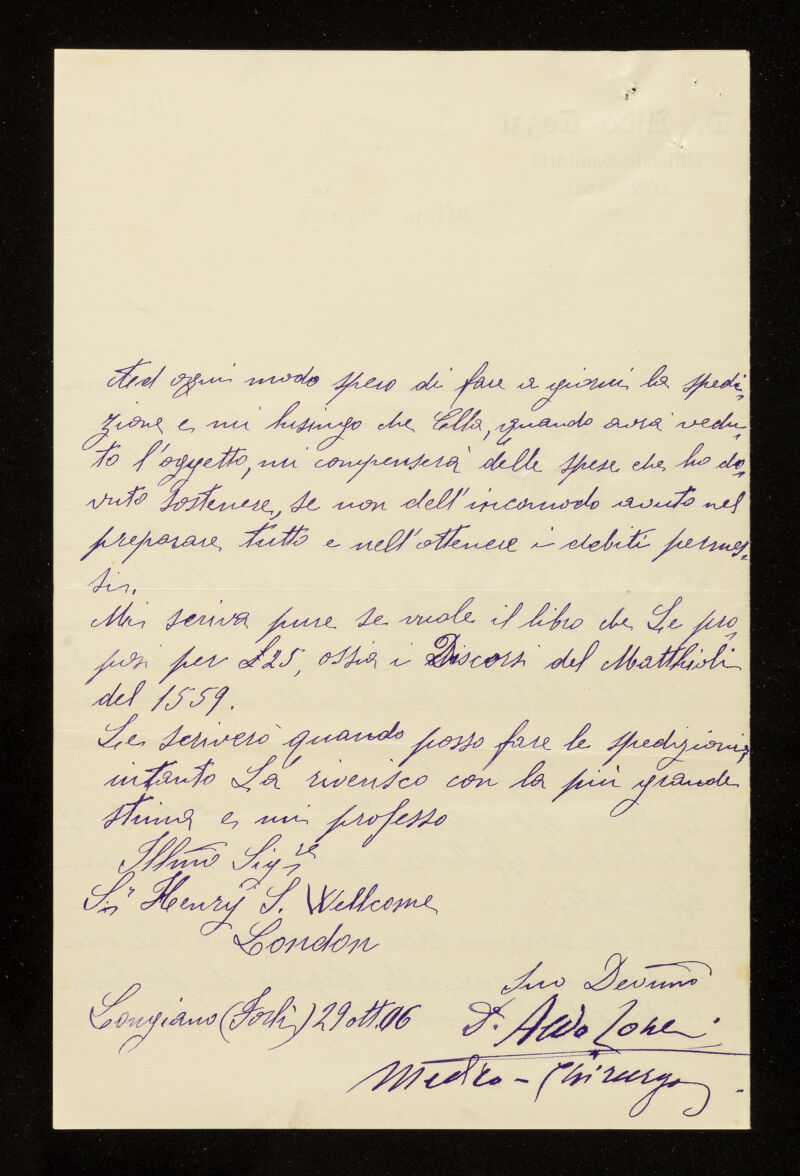 Ad ogni modo spero di fare a giorni la spedi-
zione e mi lusingo che Ella, quando avrà vedu-
to l'oggetto, mi compenserà delle spese che ho do-
vuto sostenere, se non dell'incomodo avuto nel
preparare tutto e nell'ottenere i debiti permes-
si.
Mi scriva pure se vuole il libro che Le pro-
posi per £25, ossia i Discorsi del Matthioli
del 1559.
Le scriverò quando posso fare le spedizioni,
intanto La riverisco con la più grande
stima e mi professo
Illmo Sigre
Sr Henry S. Wellcome
London
Suo Devmo
Longiano (Forlì) 29 ott. 06
Dr. Aldo
Medico-Chirurgo